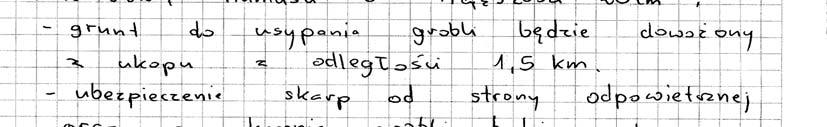 - grunt do usypania grobli będzie dowożony
z ukopu z odległości 1,5 km.
- ubezpieczenie skarp od strony odpowietrznej